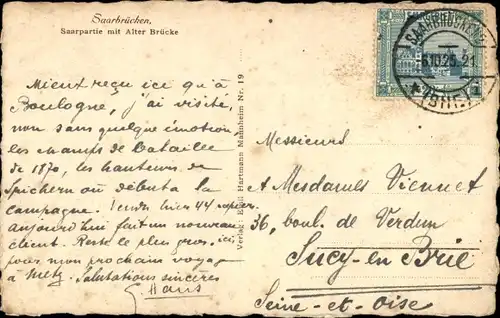 Saarbrücken,
Saarpartie mit Alter Brücke
Mieux reçu ici qu'à
Boulogne, j'ai visité,
non sans quelque émotion,
les champs de bataille
de 1870, les hauteurs de
Spichern où débuta la
campagne. Vendu hier 44
aujourd'hui fait un nouveau
client. Reste le plus gros, ici,
pour mon prochain voyage
à Metz. Salutations sincères
G. Hans
Verlag: Emil Hartmann Mannheim Nr. 19
SAARBRÜCKEN
6.10.25.
Messieurs
et Mesdames Viennet
36, boul. de Verdun
Sucy-en-Brie
Seine-et-Oise